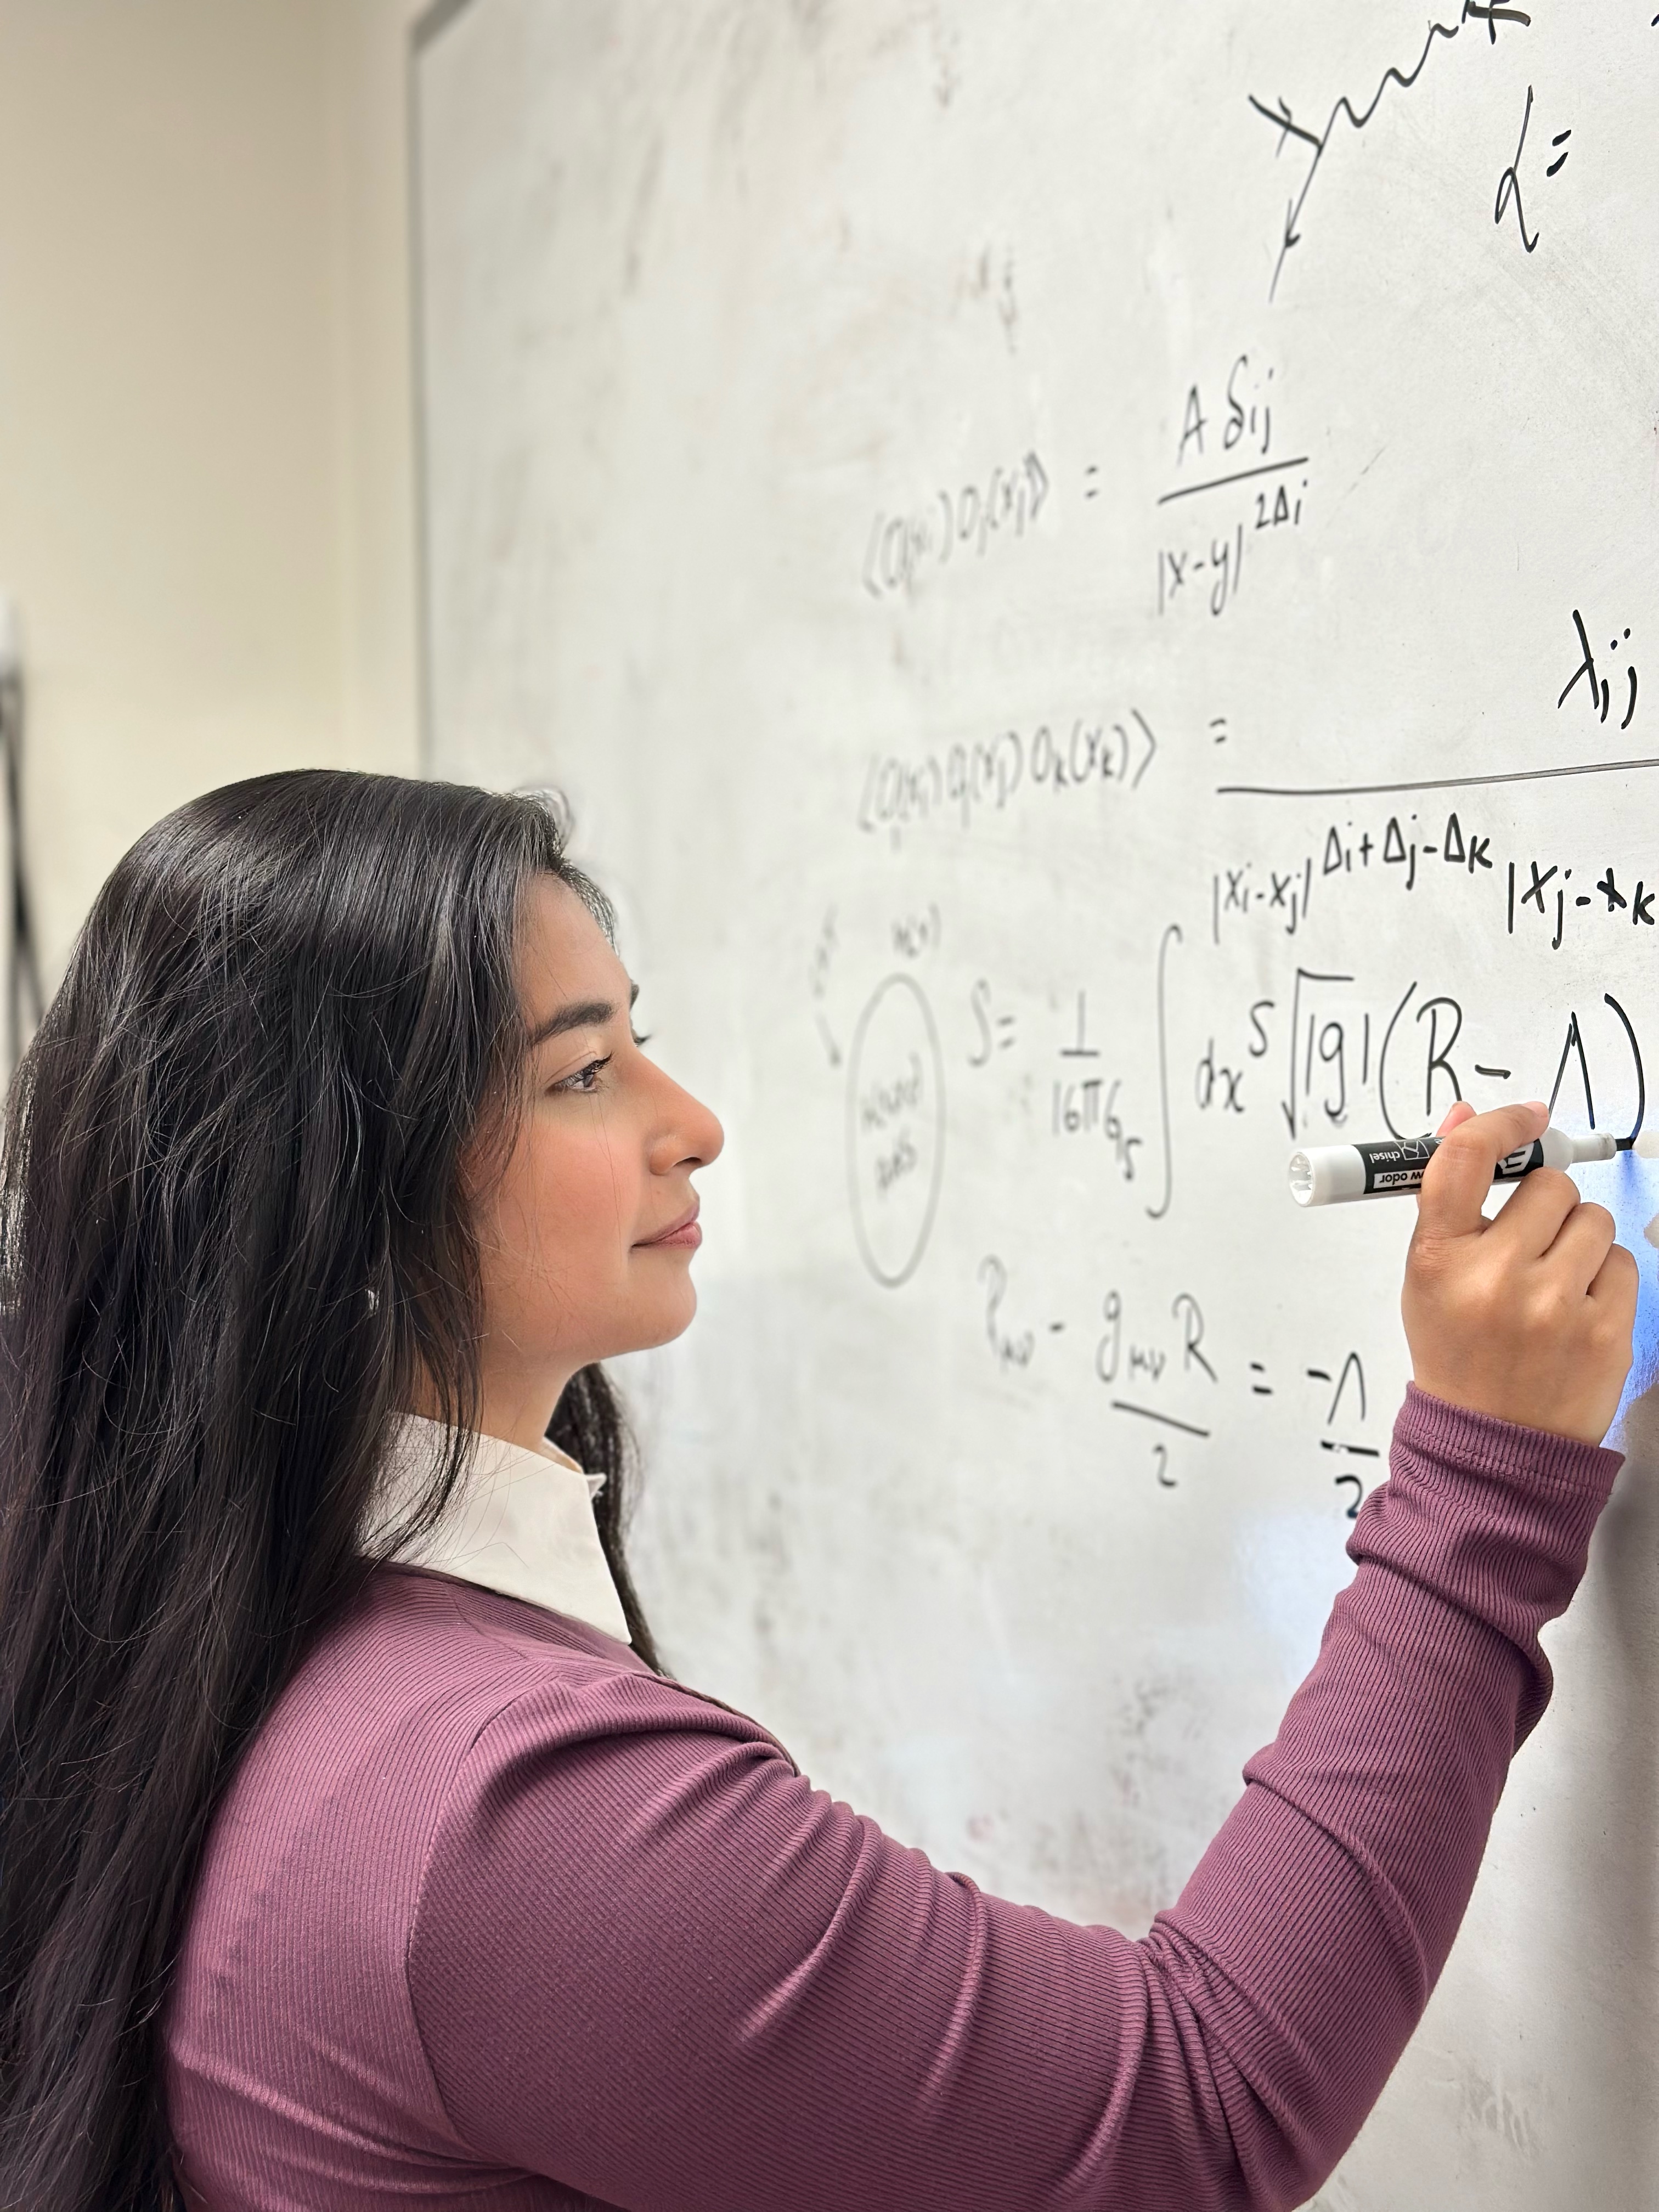 L =
⟨Oi(xi) Oj(xj)⟩ = A δij / |x-y|^2Δi
⟨Oi(xi) Oj(xj) Ok(xk)⟩ = λij
|xi-xj|^Δi+Δj-Δk |xj-xk
S = 1/16πG5 ∫ dx^5 √|g| (R - Λ)
Rμν - gμν R / 2 = -Λ / 2
low odor
chisel